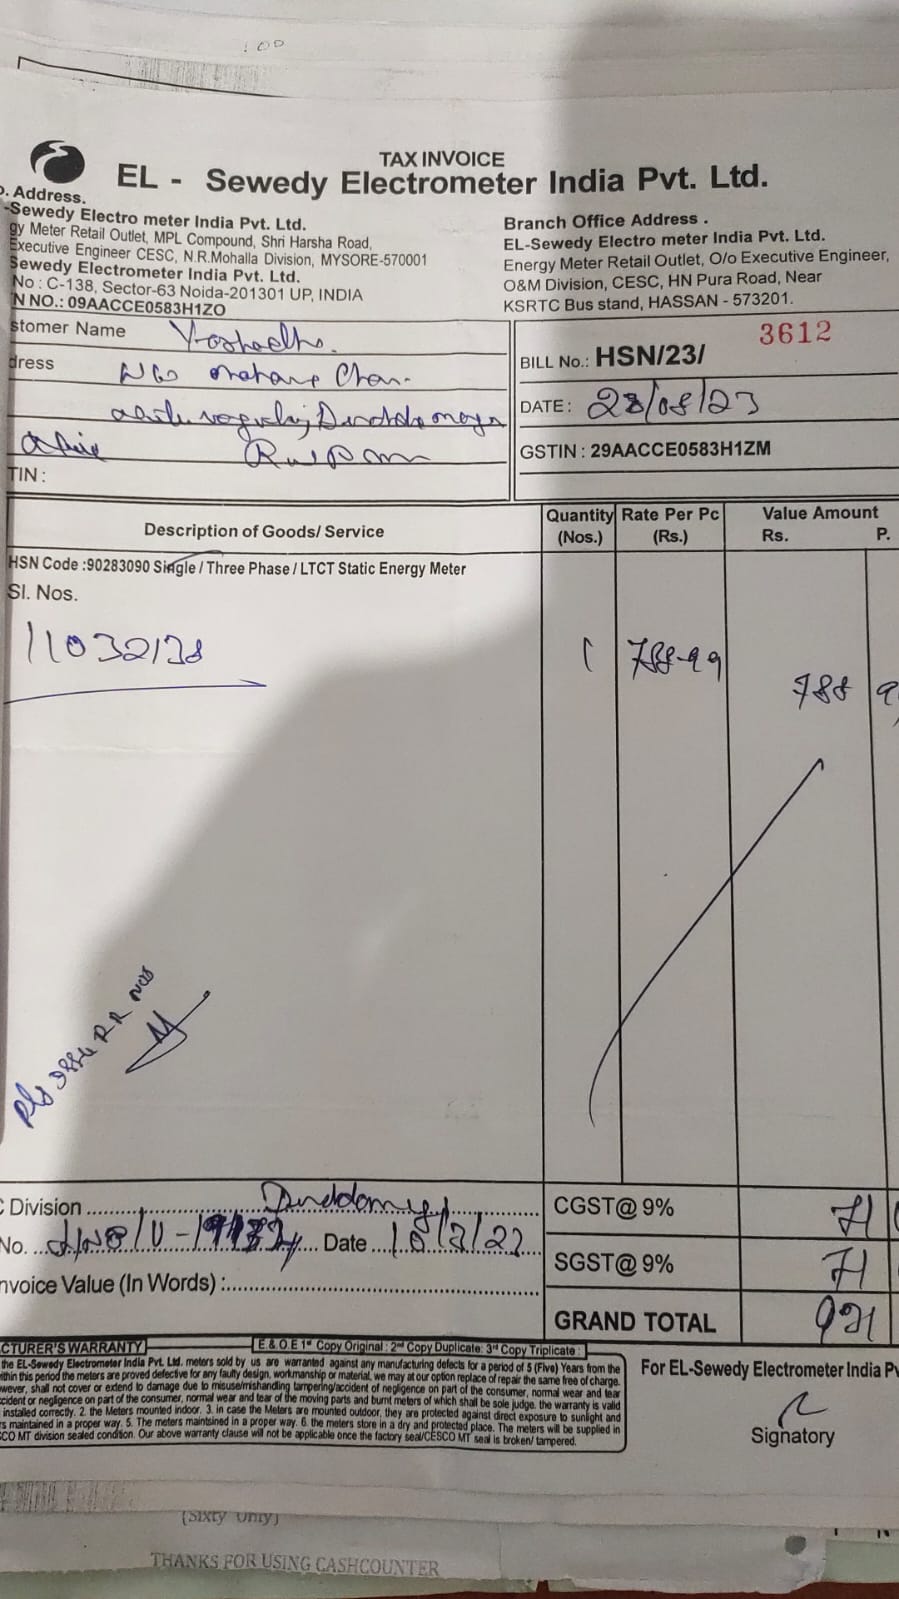 TAX INVOICE
EL - Sewedy Electrometer India Pvt. Ltd.
. Address.
-Sewedy Electro meter India Pvt. Ltd.
gy Meter Retail Outlet, MPL Compound, Shri Harsha Road,
Executive Engineer CESC, N.R.Mohalla Division, MYSORE-570001
Sewedy Electrometer India Pvt. Ltd.
No : C-138, Sector-63 Noida-201301 UP, INDIA
N NO.: 09AACCE0583H1ZO
Branch Office Address .
EL-Sewedy Electro meter India Pvt. Ltd.
Energy Meter Retail Outlet, O/o Executive Engineer,
O&M Division, CESC, HN Pura Road, Near
KSRTC Bus stand, HASSAN - 573201.
stomer Name
dress
TIN :
3612
BILL No.: HSN/23/
DATE : 28/08/23
GSTIN : 29AACCE0583H1ZM
Description of Goods/ Service
Quantity (Nos.)
Rate Per Pc (Rs.)
Value Amount
Rs. P.
HSN Code :90283090 Single / Three Phase / LTCT Static Energy Meter
Sl. Nos.
11032138
1 788-99
788 9
Division
No. Date
nvoice Value (In Words) :
CGST@ 9% 71
SGST@ 9% 71
GRAND TOTAL 931
CTURER'S WARRANTY
E & O.E 1st Copy Original : 2nd Copy Duplicate: 3rd Copy Triplicate :
the EL-Sewedy Electrometer India Pvt. Ltd. meters sold by us are warranted against any manufacturing defects for a period of 5 (Five) Years from the
ithin this period the meters are proved defective for any faulty design, workmanship or material, we may at our option replace of repair the same free of charge.
wever, shall not cover or extend to damage due to misuse/mishandling tampering/accident of negligence on part of the consumer, normal wear and tear
cident or negligence on part of the consumer, normal wear and tear of the moving parts and burnt meters of which shall be sole judge. the warranty is valid
installed correctly. 2. the Meters mounted indoor. 3. in case the Meters are mounted outdoor, they are protected against direct exposure to sunlight and
rs maintained in a proper way. 5. The meters maintsined in a proper way. 6. the meters store in a dry and protected place. The meters will be supplied in
CO MT division sealed condition. Our above warranty clause will not be applicable once the factory seal/CESCO MT seal is broken/ tampered.
For EL-Sewedy Electrometer India Pv
Signatory
(Sixty Only)
THANKS FOR USING CASHCOUNTER